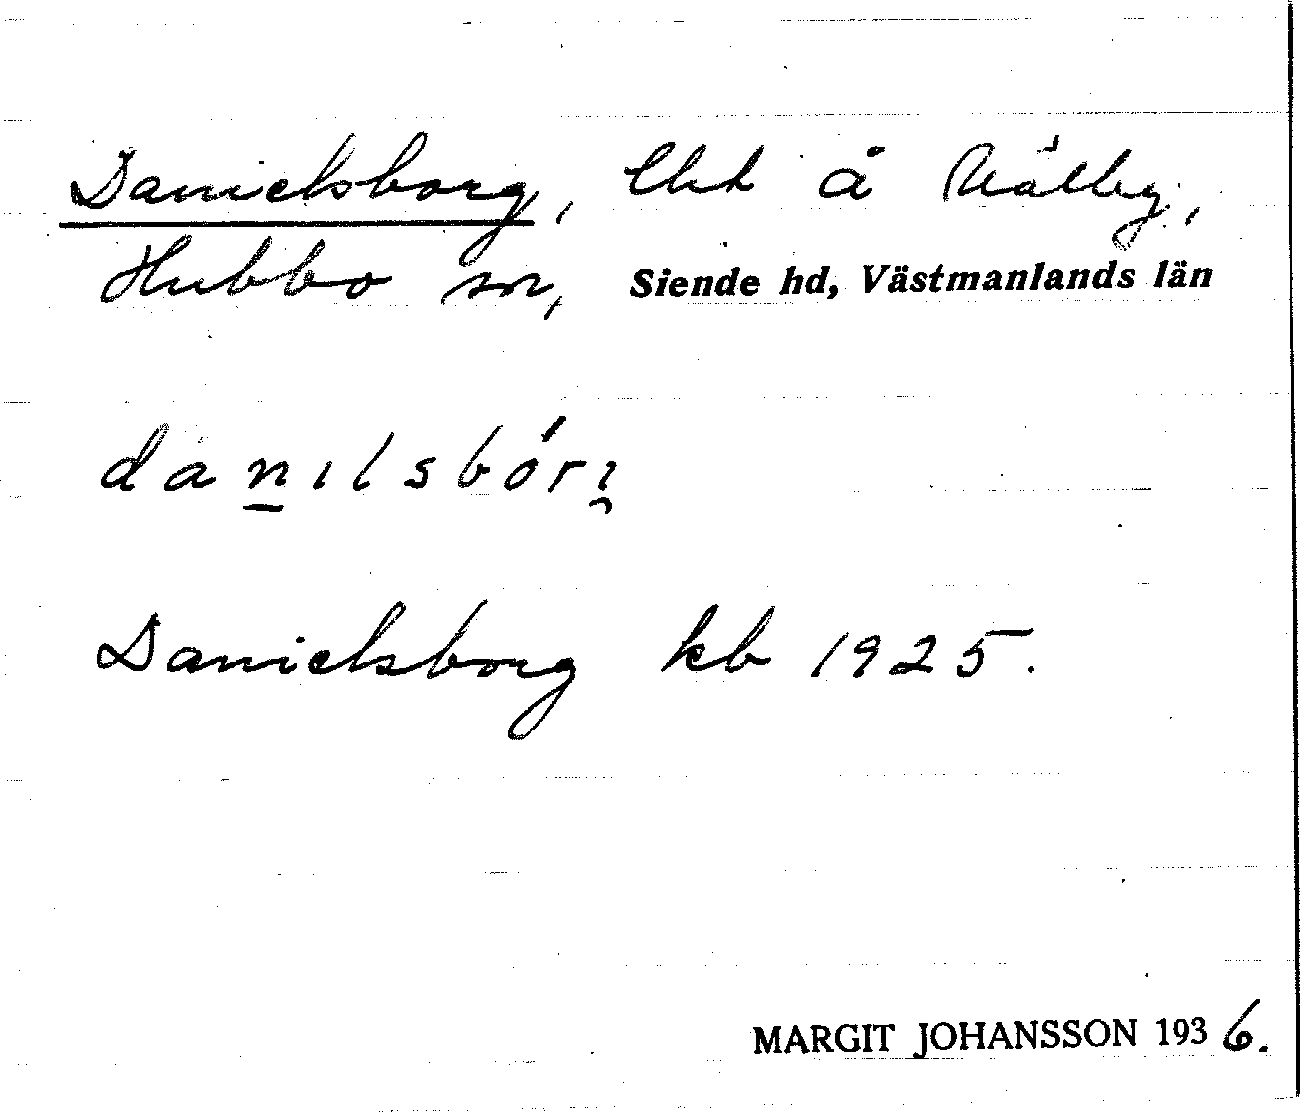 Danielsborg, lht å Nälby,
Hubbo sn, Siende hd, Västmanlands län
danılsbórı̯
Danielsborg kb 1925.
MARGIT JOHANSSON 1936.